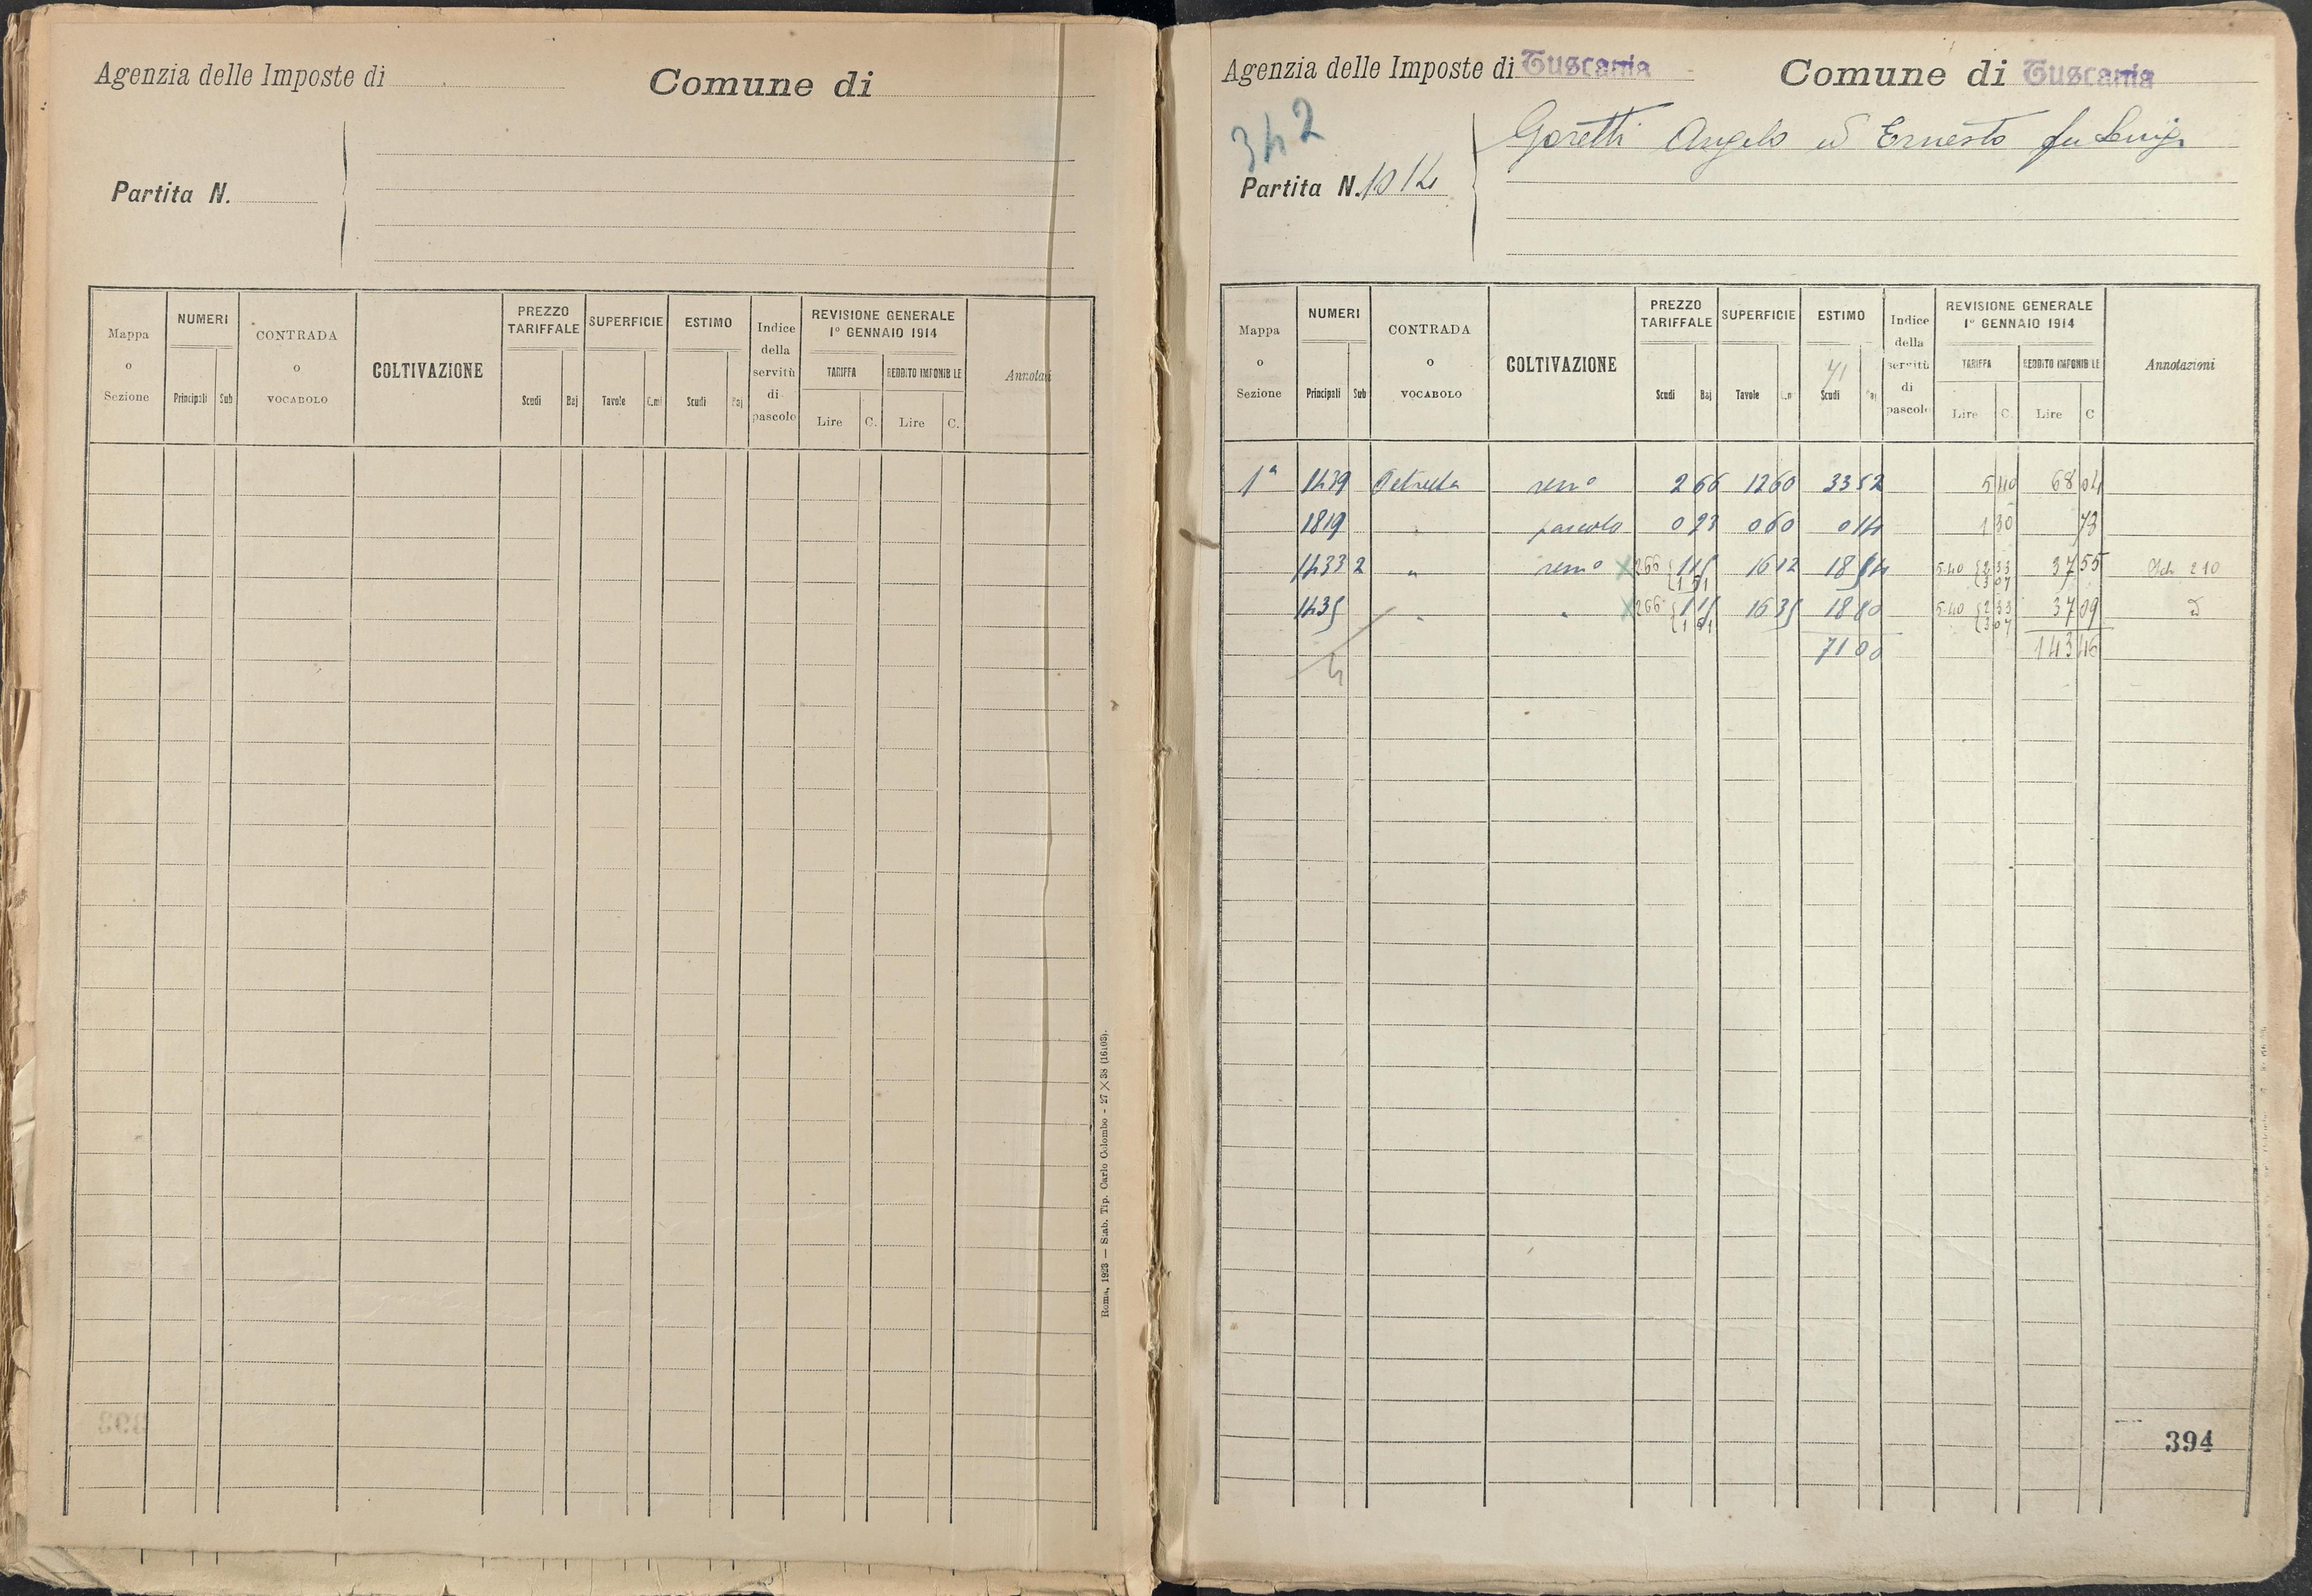 Agenzia delle Imposte di
Comune di
Partita N.
Mappa o Sezione
NUMERI
Principali Sub
CONTRADA o VOCABOLO
COLTIVAZIONE
PREZZO TARIFFALE
Scudi Baj
SUPERFICIE
Tavole C.mi
ESTIMO
Scudi Baj
Indice della servitù di pascolo
REVISIONE GENERALE
1º GENNAIO 1914
TARIFFA REDDITO IMPONIBILE
Lire C. Lire C.
Annotazi
Roma, 1923 — Stab. Tip. Carlo Colombo - 27 × 38 (16105).
393
Agenzia delle Imposte di Tuscania
Comune di Tuscania
342
Partita N. 1014
Goretti Angelo ed Ernesto fu Luigi
Mappa o Sezione
NUMERI
Principali Sub
CONTRADA o VOCABOLO
COLTIVAZIONE
PREZZO TARIFFALE
Scudi Baj
SUPERFICIE
Tavole C.mi
ESTIMO
71
Scudi Baj
Indice della servitù di pascolo
REVISIONE GENERALE
1º GENNAIO 1914
TARIFFA REDDITO IMPONIBILE
Lire C. Lire C
Annotazioni
1ª 1439 Petrella semº 2 66 12 60 33 52 5 40 68 04
1819 " pascolo 0 23 0 60 0 14 1 30 73
1433 2 " semº × 266 { 1 15 1 51 16 12 18 54 5.40 { 2 33 3 07 37 55 210
1435 " " × 266 { 1 15 1 51 16 35 18 80 5.40 { 2 33 3 07 37 09
71 00 143 46
4
394